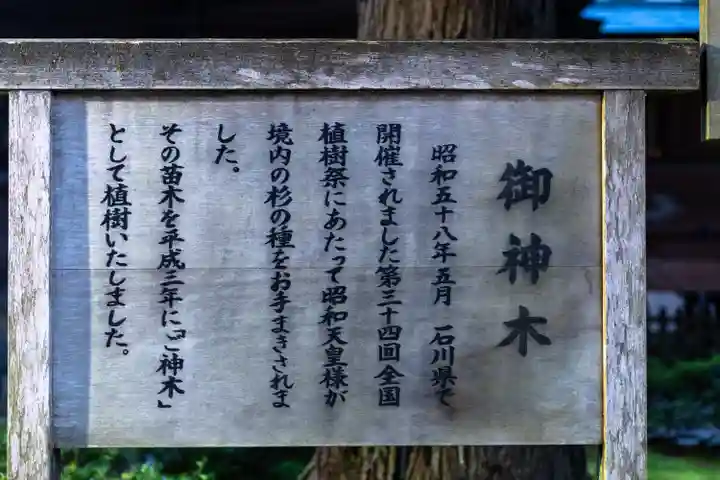 御神木
昭和五十八年五月　石川県で
開催されました第三十四回全国
植樹祭にあたって昭和天皇様が
境内の杉の種をお手まきされま
した。
その苗木を平成三年に「ご神木」
として植樹いたしました。